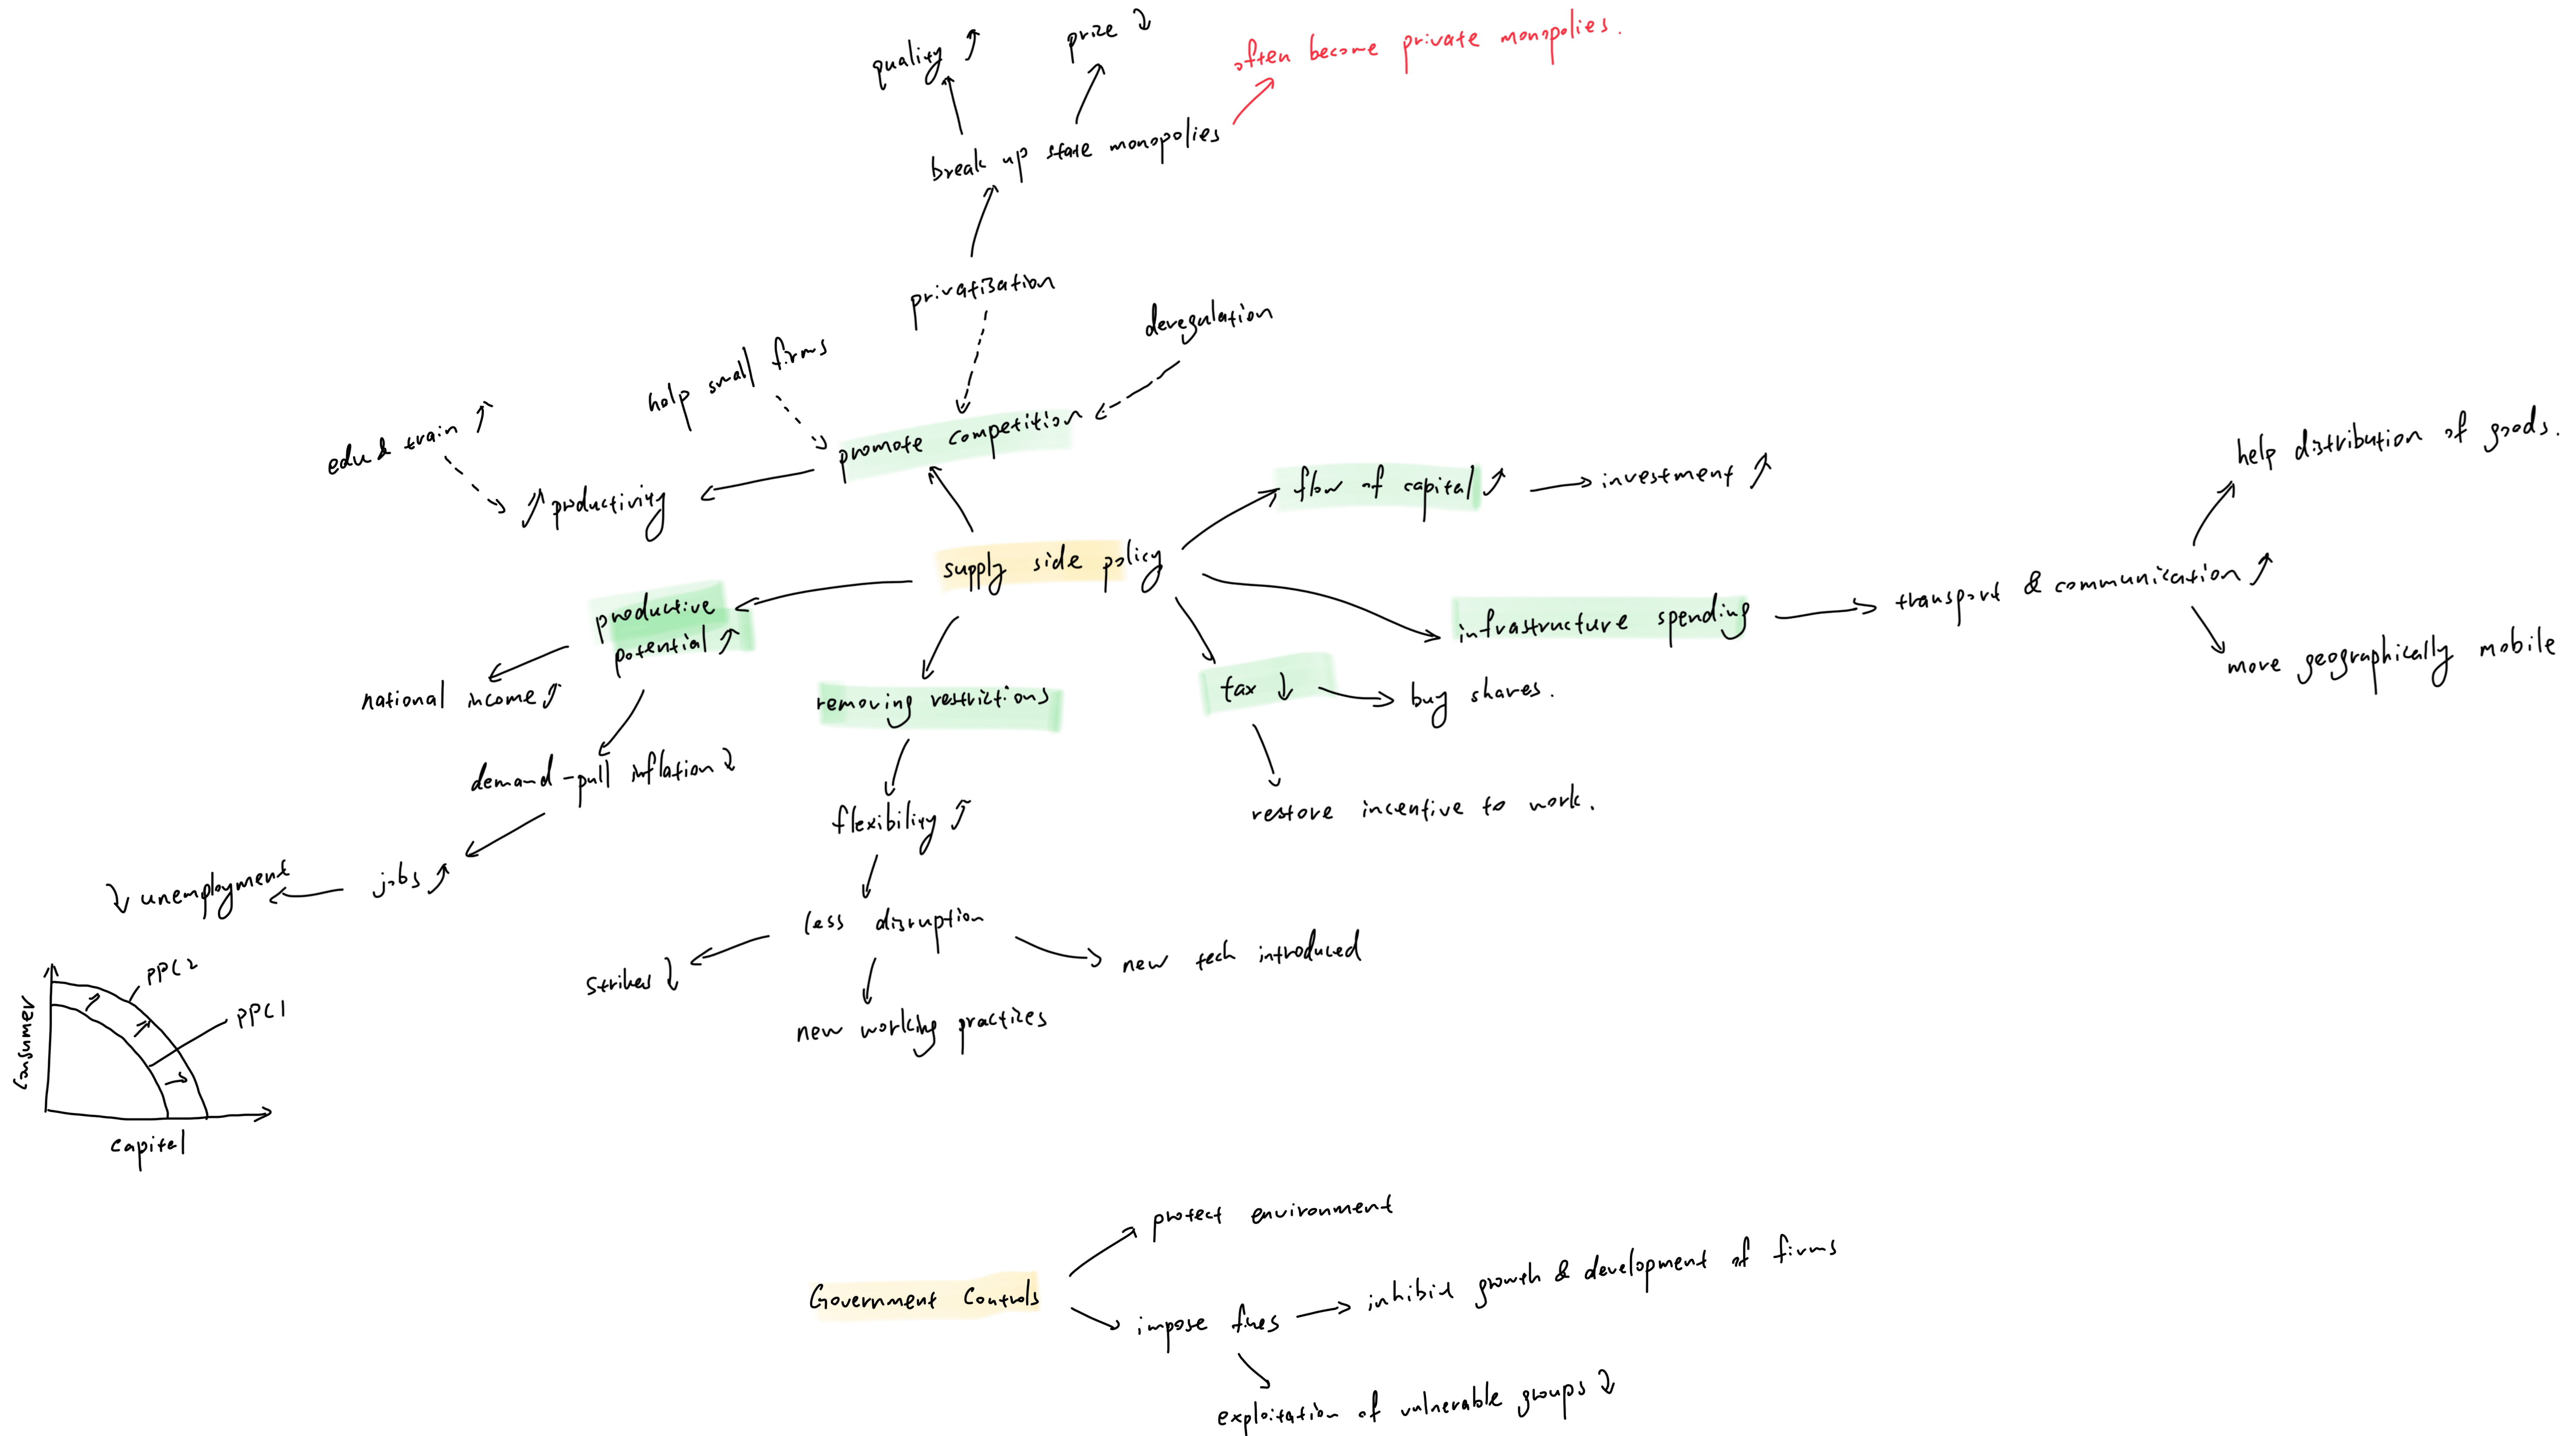 quality ↑
prize ↓
often become private monopolies.
break up state monopolies
privatisation
deregulation
help small firms
edu & train ↑
promote competition
↑ productivity
flow of capital ↑
investment ↑
help distribution of goods.
supply side policy
productive
potential ↑
infrastructure spending
transport & communication ↑
more geographically mobile
national income ↑
removing restrictions
tax ↓
buy shares.
demand-pull inflation ↓
flexibility ↑
restore incentive to work.
↓ unemployment
jobs ↑
less disruption
strikes ↓
new tech introduced
new working practices
PPC2
PPC1
Consumer
Capital
protect environment
Government Controls
impose fines
inhibit growth & development of firms
exploitation of vulnerable groups ↓